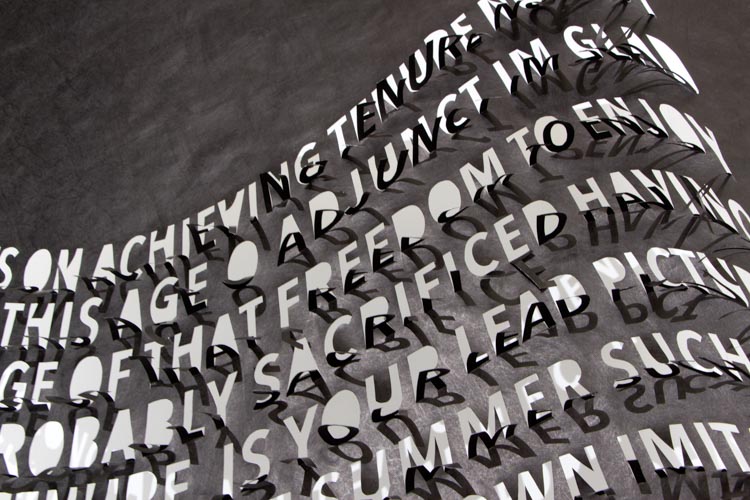 S ON ACHIEVING TENURE
THIS AGE O ADJUNCT IM
GE OF THAT FREEDOM TO ENJOY
ROBABLY SACRIFICED HAVING
IS YOUR LEAD PICTU
SUMMER SUCH
OWN IMIT